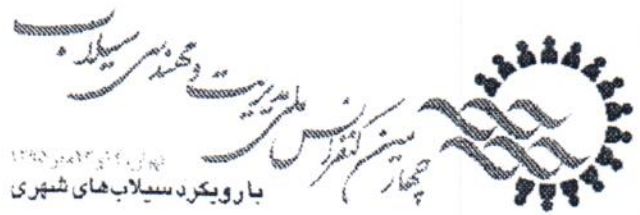 چهارمین کنفرانس ملی مدیریت و مهندسی سیلاب
با رویکرد سیلاب‌های شهری